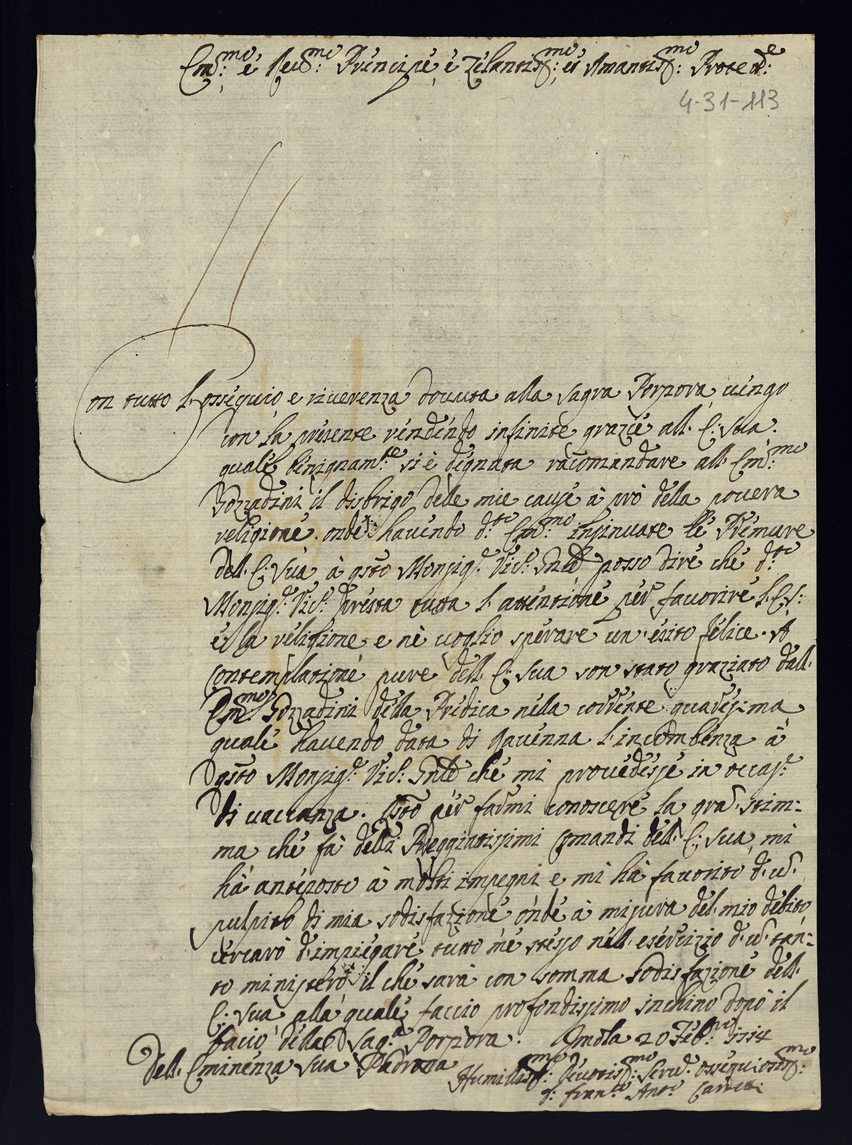 Em.mo e Rev.mo Principe e Zelantiss.mo et Amantiss.mo Protett.e
4-31-113
Con tutto l'ossequio e riverenza dovuta alla Sagra Porpora, vengo
con la presente rendendo infinite grazie all. E: Sua.
quale benignam.te si è degnata racomandare all. Em.mo
Gozzadini il disbrigo delle mie cause à prò della povera
religione. onde havendo d.to Em.mo insinuate le Premure
dell. E: Sua à qsto Monsig.r Vic.o Gnle posso dire che d.to
Monsig.r Vic.o presta tutta l'attenzione per favorire l. E: S:
e la religione e ne voglio sperare un esito felice. A
contemplatione pure dell. E: Sua son stato graziato dall.
Em.mo Gozzadini della Predica nella corrente quaresima
quale havendo data di Ravenna l'incombenza à
qsto Monsig.r Vic.o Gnle che mi provedesse in occas.e
di vacanza. Qsto per farmi conoscere la gra stim-
ma che fà delli Preggiatissimi Comandi dell. E: Sua, mi
hà anteposto à molti impegni e mi hà favorito d'un
pulpito di mia sodisfazione onde à misura del mio debito
cercarò d'impiegare tutto me stesso nell. esercizio d'un tan-
to ministero il che sarà con somma sodisfazione dell.
E: Sua alla quale faccio profondissimo inchino dopò il
facio della Sag.a Porpora. Imola 20 Feb.ro 1714
Dell. Eminenza Sua Padrona
Humiliss.mo Devotiss.mo Serv.e Ossequiosiss.mo
Ant.o